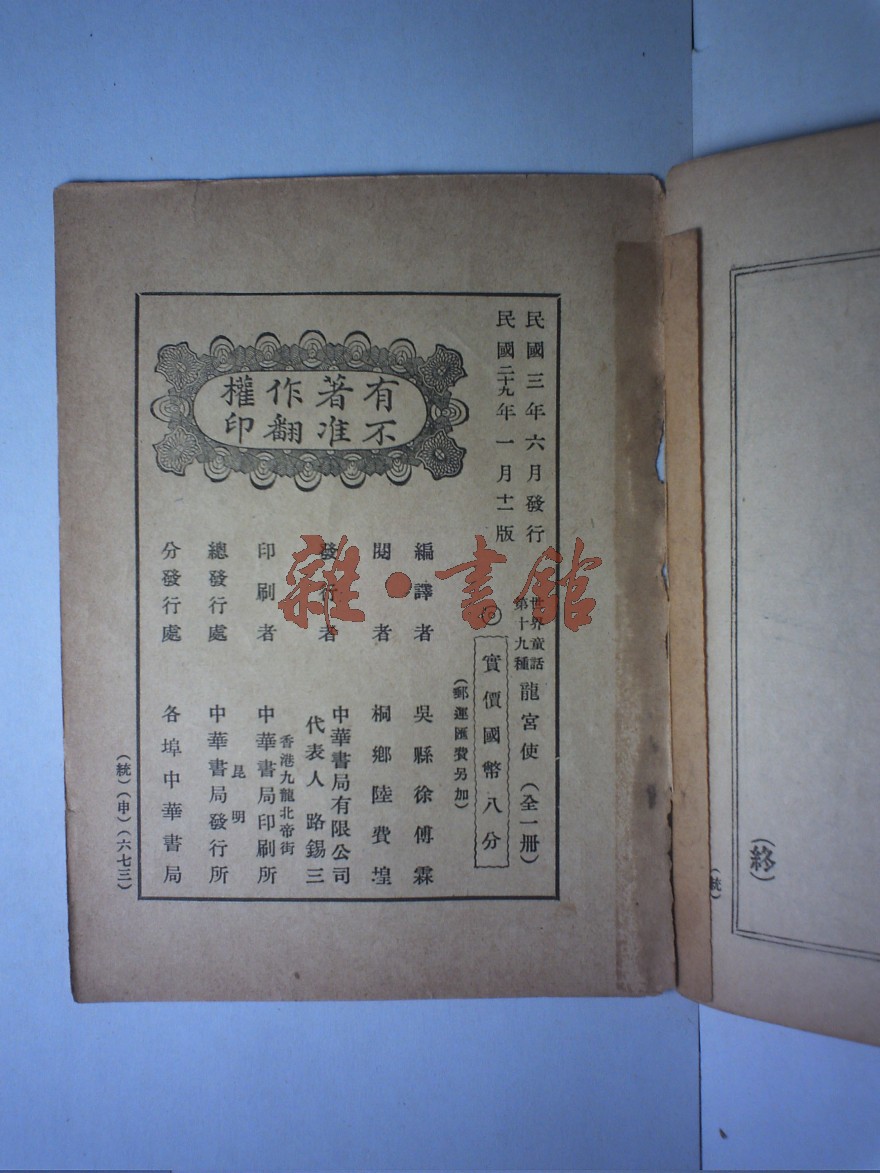 (終)
(統)
民國三年六月發行
民國二十九年一月十二版
世界童話
第十九種
龍宮使(全一册)
實價國幣八分
(郵運匯費另加)
有不著准作翻權印
編譯者 吳縣徐傅霖
閱者 桐鄉陸費堭
發行者 中華書局有限公司
代表人 路錫三
印刷者 香港九龍北帝街
中華書局印刷所
總發行處 昆明
中華書局發行所
分發行處 各埠中華書局
(統)(申)(六七三)
雜·書館